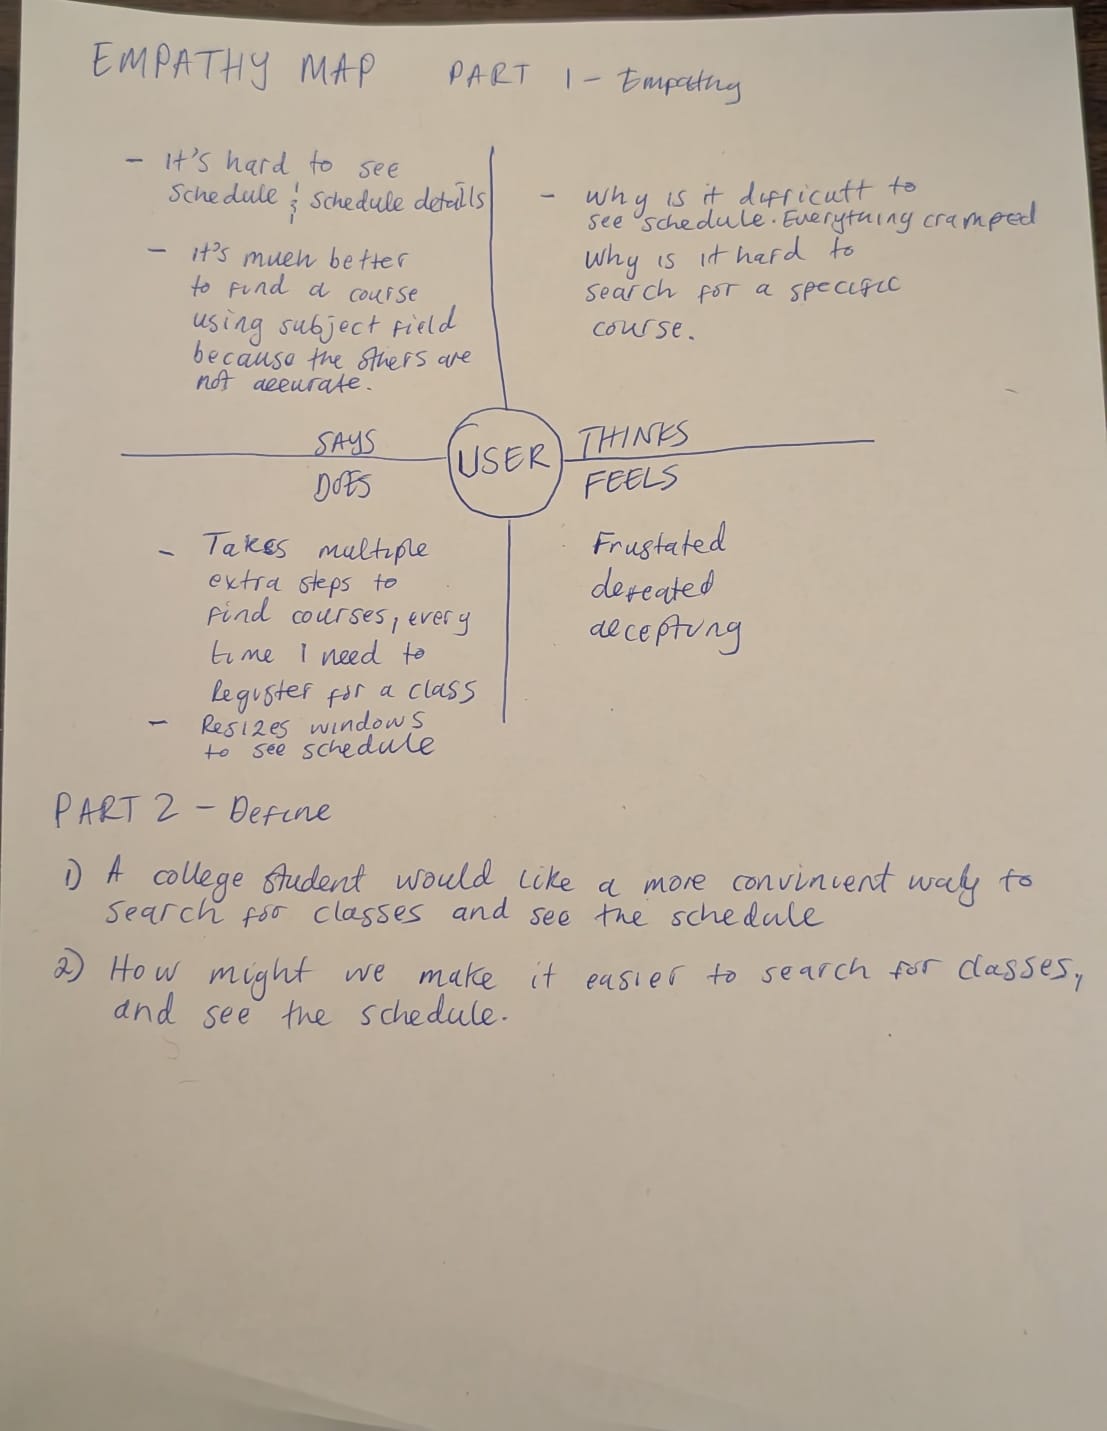 EMPATHY MAP PART 1 - Empathy
- It's hard to see
schedule & schedule details
- it's much better
to find a course
using subject field
because the others are
not accurate.
- Why is it difficult to
see schedule. Everything cramped
Why is it hard to
search for a specific
course.
SAYS
THINKS
USER
DOES
FEELS
- Takes multiple
extra steps to
find courses, every
time I need to
Register for a class
- Resizes windows
to see schedule
Frustated
defeated
accepting
PART 2 - Define
1) A college student would like a more convinient way to
search for classes and see the schedule
2) How might we make it easier to search for classes,
and see the schedule.